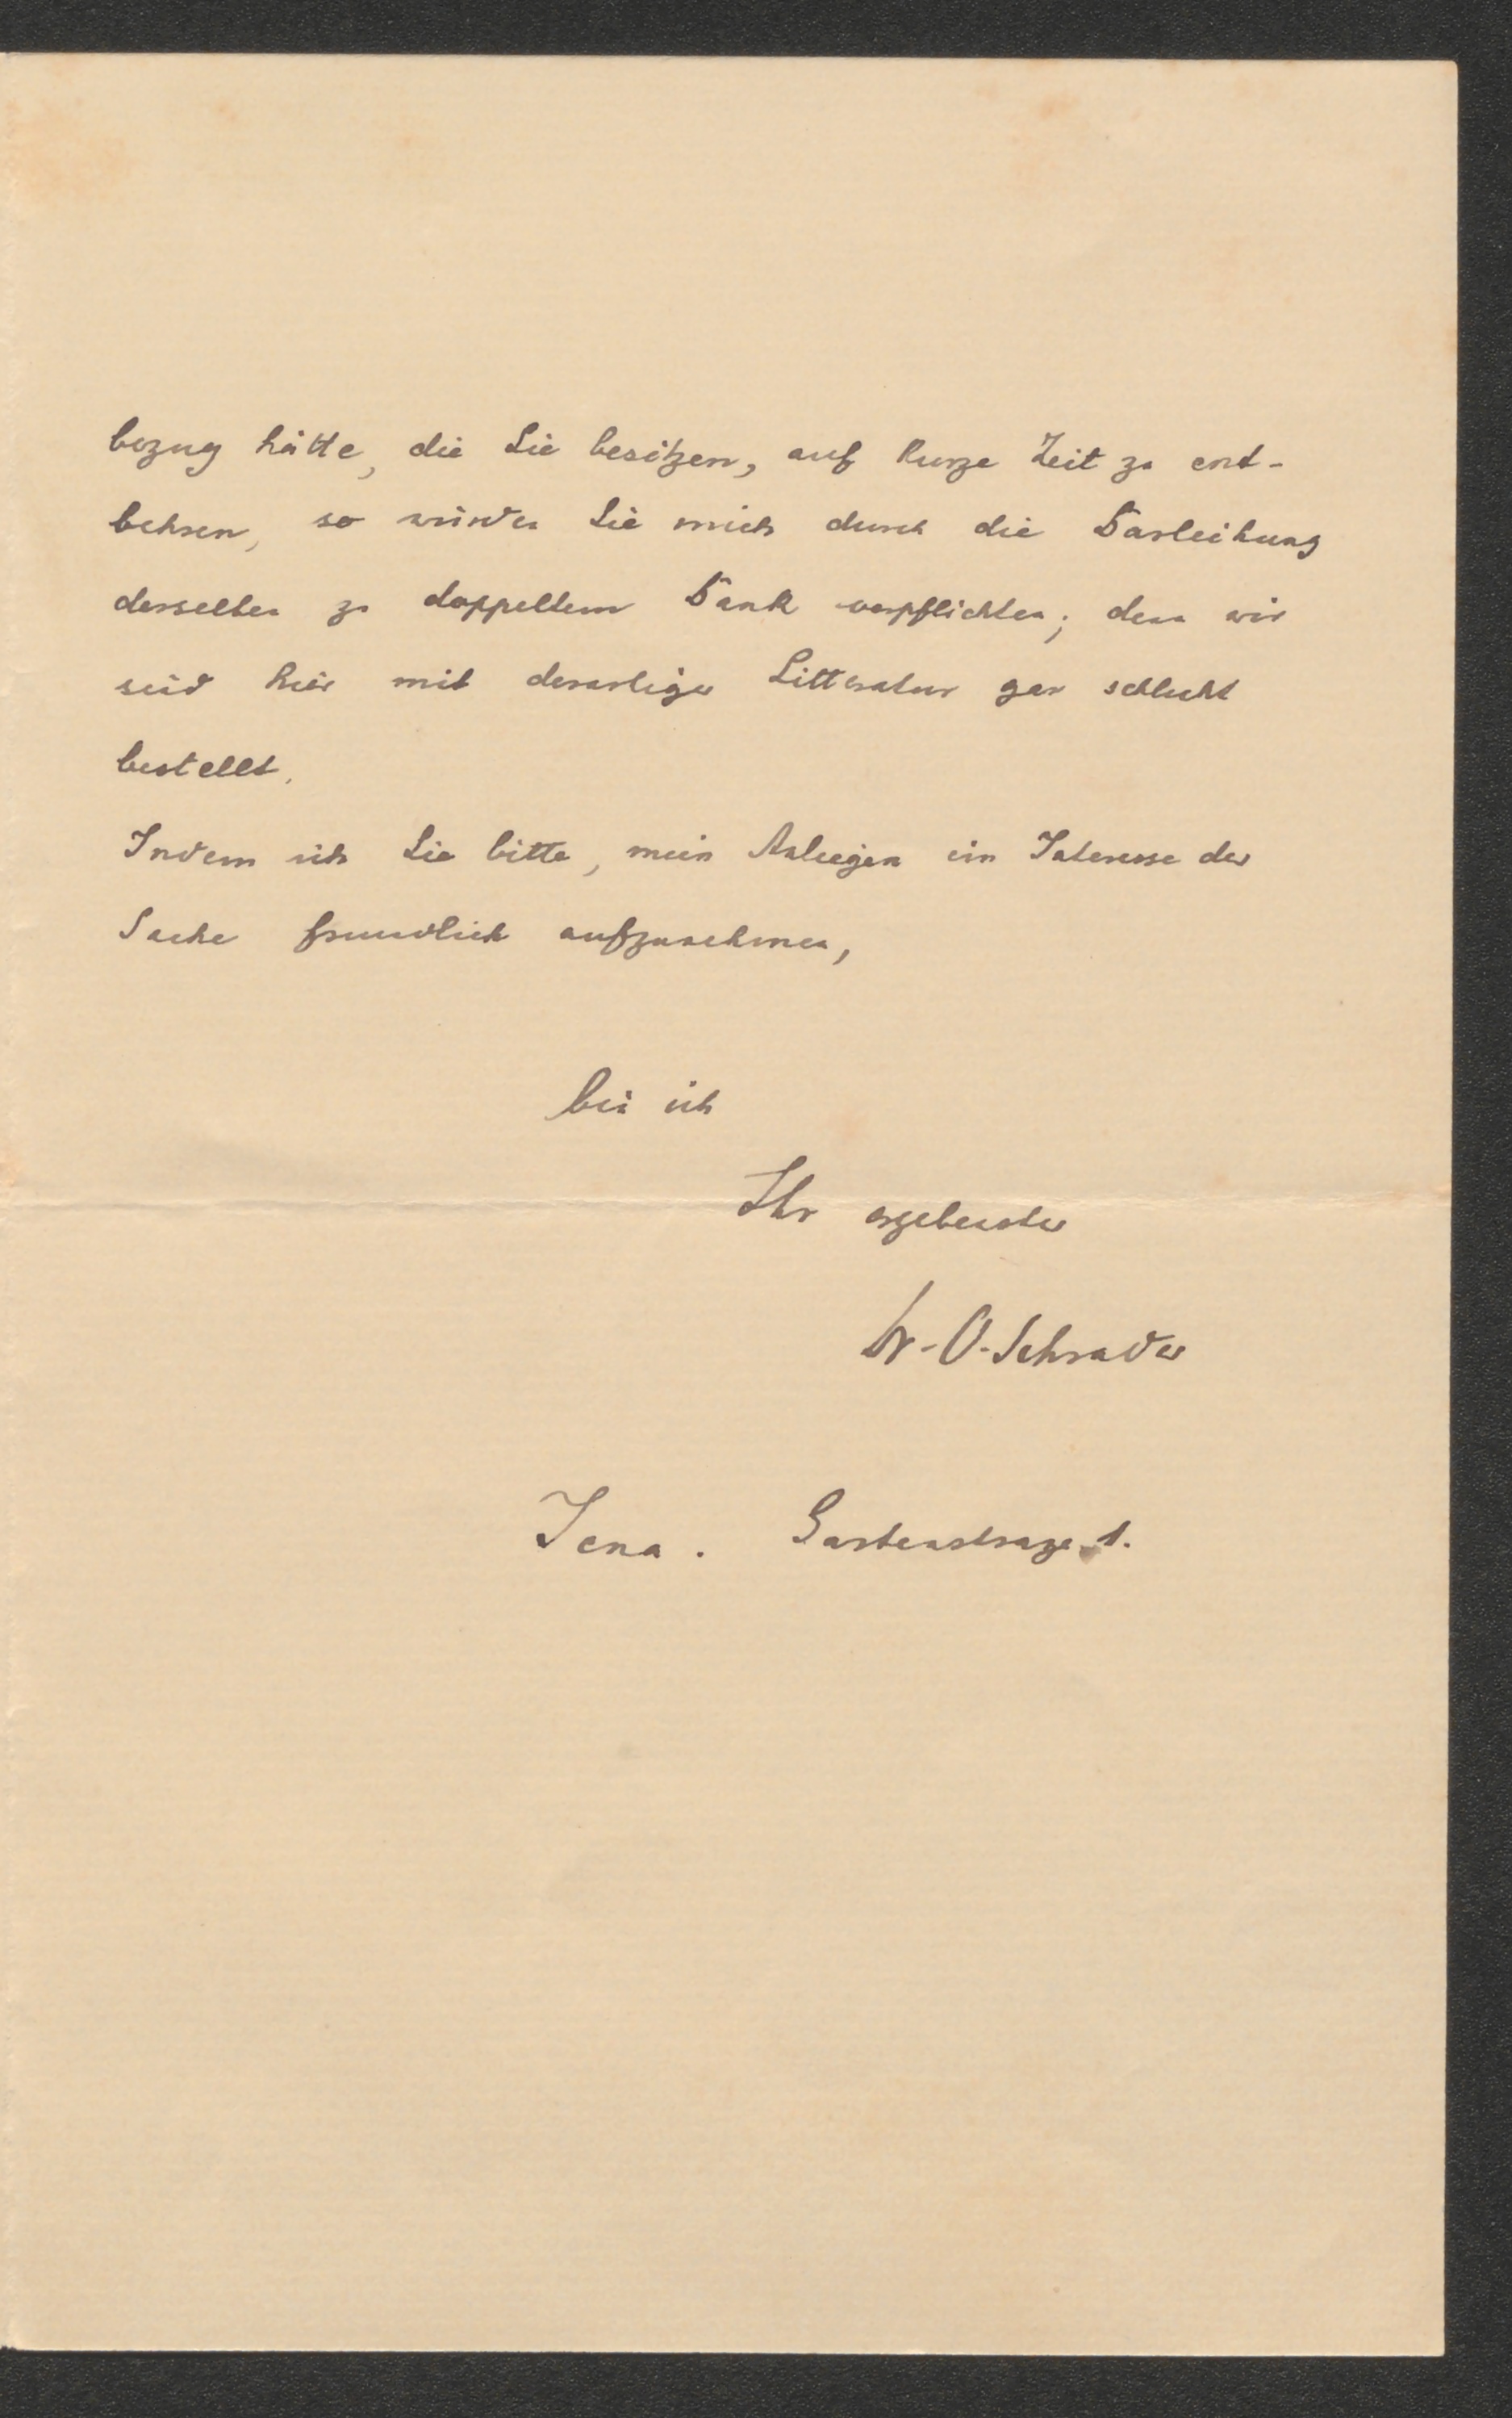 bezug hätte, die Sie besitzen, auf kurze Zeit zu ent-
behren, so würden Sie mich durch die Darleihung
derselben zu doppeltem Dank verpflichten; denn wir
sind hier mit derartiger Litteratur gar schlecht
bestellt.
Indem ich Sie bitte, mein Anliegen im Interesse der
Sache freundlich aufzunehmen,
bin ich
Ihr ergebenster
Dr. O. Schrader
Jena. Gartenstrasze 1.